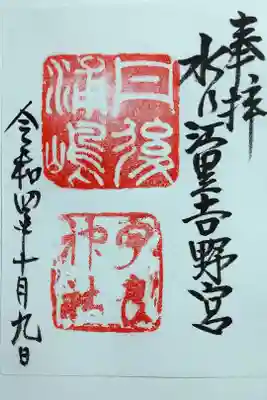 奉拝
水乃江里吉野宮
丹後
浦嶋
宇良
神社
令和四年十月九日